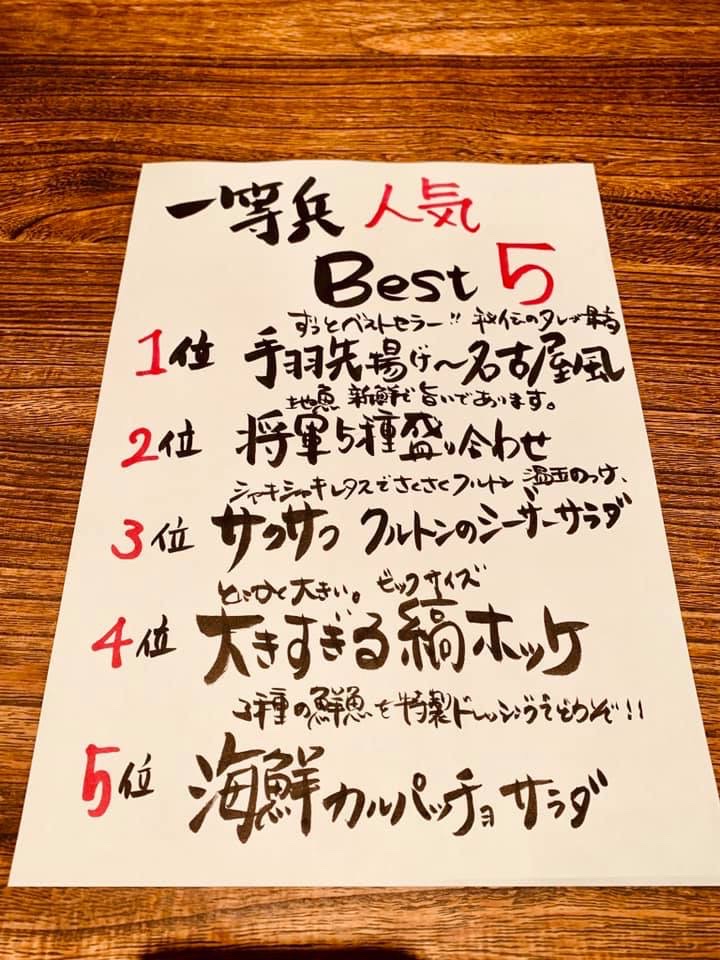 一等兵 人気
Best 5
ずっとベストセラー!! 秘伝のタレが最高
1位 手羽先揚げ〜名古屋風
地魚 新鮮で旨いであります。
2位 将軍5種盛り合わせ
シャキシャキレタスでさくさくクルトン 温玉のっけ、
3位 サクサク クルトンのシーザーサラダ
とにかく大きい。ビックサイズ
4位 大きすぎる縞ホッケ
3種の鮮魚を特製ドレッシングでどうぞ!!
5位 海鮮カルパッチョサラダ